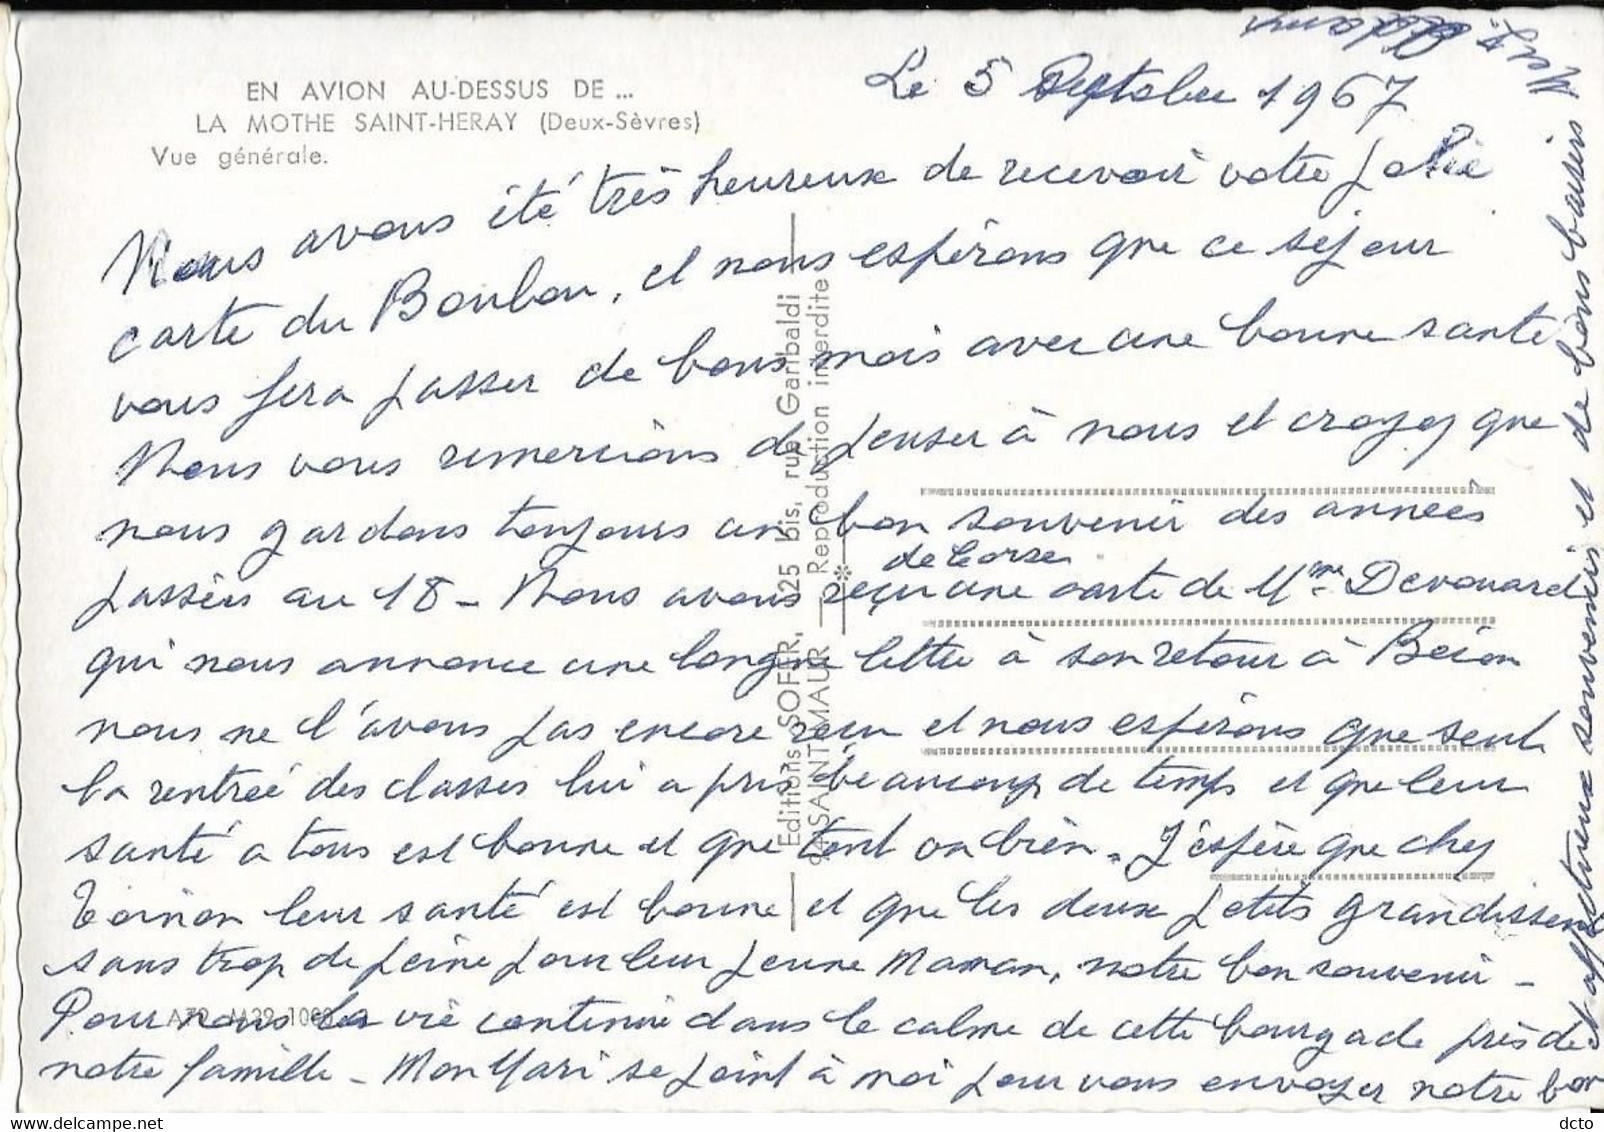 EN AVION AU-DESSUS DE ...
LA MOTHE SAINT-HERAY (Deux-Sèvres)
Vue générale.
Le 5 Septobre 1967
Nous avons été très heureux de recevoir votre jolie
carte du Boulou, et nous espérons que ce séjour
vous fera passer de bons mois avec une bonne santé
Nous vous remercions de penser à nous et croyez que
nous gardons toujours un bon souvenir des années
de Corse
passées au 18 - Nous avons reçu une carte de Mme Devouard
qui nous annonce une longue lettre à son retour à Bécon
nous ne l'avons pas encore reçu et nous espérons que seul
la rentrée des classes lui a pris beaucoup de temps et que leur
santé a tous est bonne et que tout va bien. J'espère que chez
Toinon leur santé est bonne et que les deux petits grandissent
sans trop de peine pour leur jeune Maman, notre bon souvenir -
Pour nous la vie continue dans le calme de cette bourgade près de
notre famille - Mon Mari se joint à moi pour vous envoyer notre bon
et affectueux souvenirs et de bons baisers
Editions SOFER, 325 bis, rue Garibaldi
94 SAINT-MAUR — Reproduction interdite